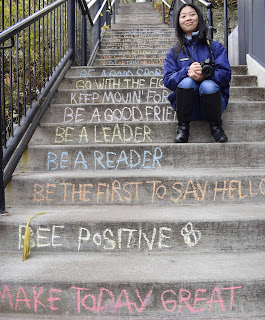 GO WITH THE FLOW
KEEP MOVIN' FOR
BE A GOOD FRIEND
BE A LEADER
BE A READER
BE THE FIRST TO SAY HELLO
BEE POSITIVE
MAKE TODAY GREAT